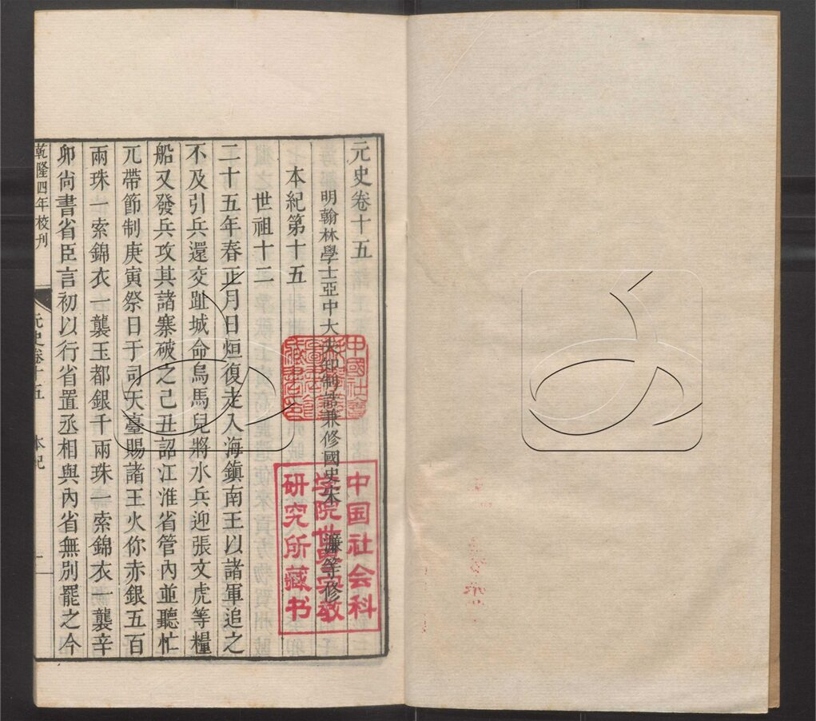 元史卷十五
明翰林學士亞中大夫知制誥兼修國史宋 濂等修
本紀第十五
世祖十二
二十五年春正月日烜復走入海鎮南王以諸軍追之
不及引兵還交趾城命烏馬兒將水兵迎張文虎等糧
船又發兵攻其諸寨破之己丑詔江淮省管內並聽忙
兀帶節制庚寅祭日于司天臺賜諸王火你赤銀五百
兩珠一索錦衣一襲玉都銀千兩珠一索錦衣一襲辛
卯尚書省臣言初以行省置丞相與內省無別罷之今
乾隆四年校刊 元史卷十五 本紀 一
中国社会科
学院世界宗教
研究所藏书